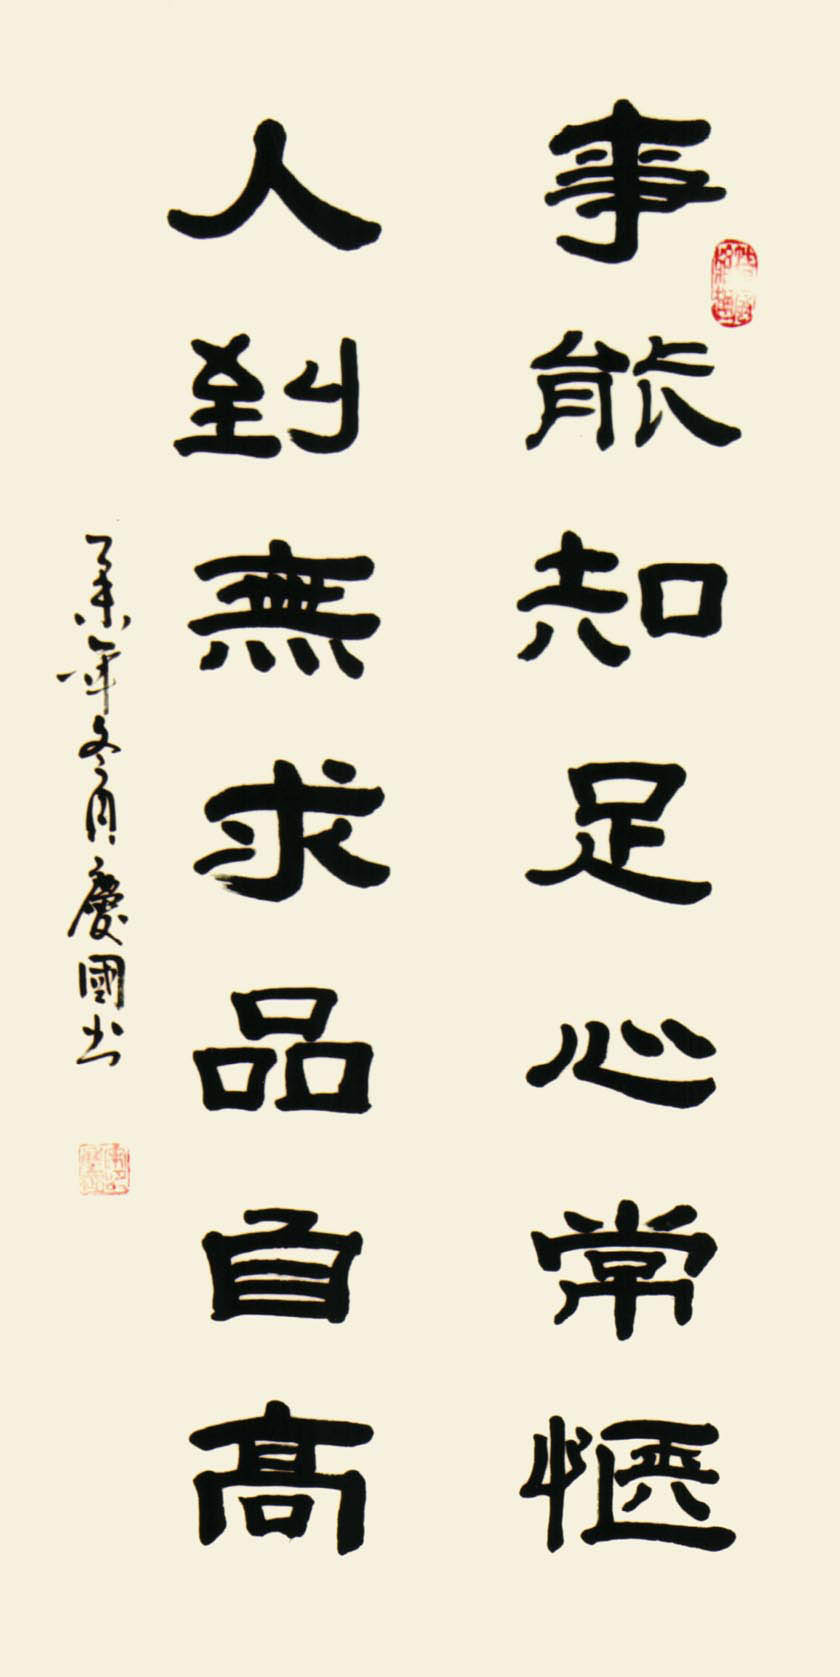 事能知足心常惬
人到無求品自高
年冬月慶國书